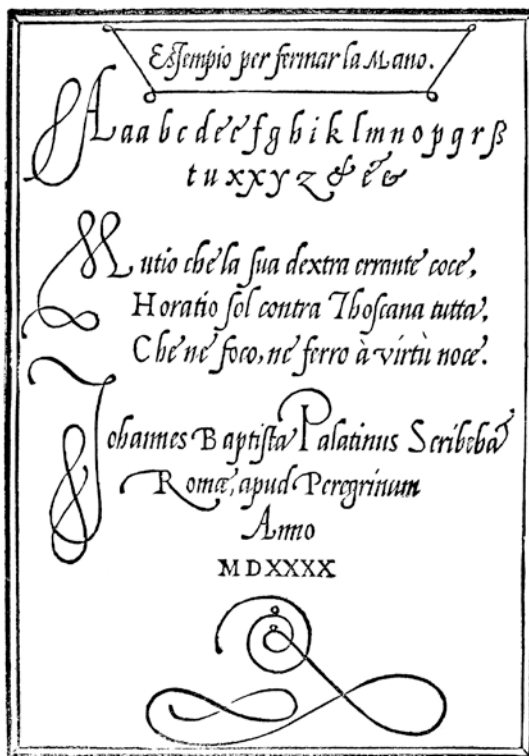 Essempio per fermar la Mano.
A a a b c d e e f g h i k l m n o p q r ß
t u x x y z & e &
Mutio che la sua dextra errante coce,
Horatio sol contra Thoscana tutta,
Che ne foco, ne ferro à virtù noce.
Johannes Baptista Palatinus Scribebat
Romæ, apud Peregrinum
Anno
MDXXXX